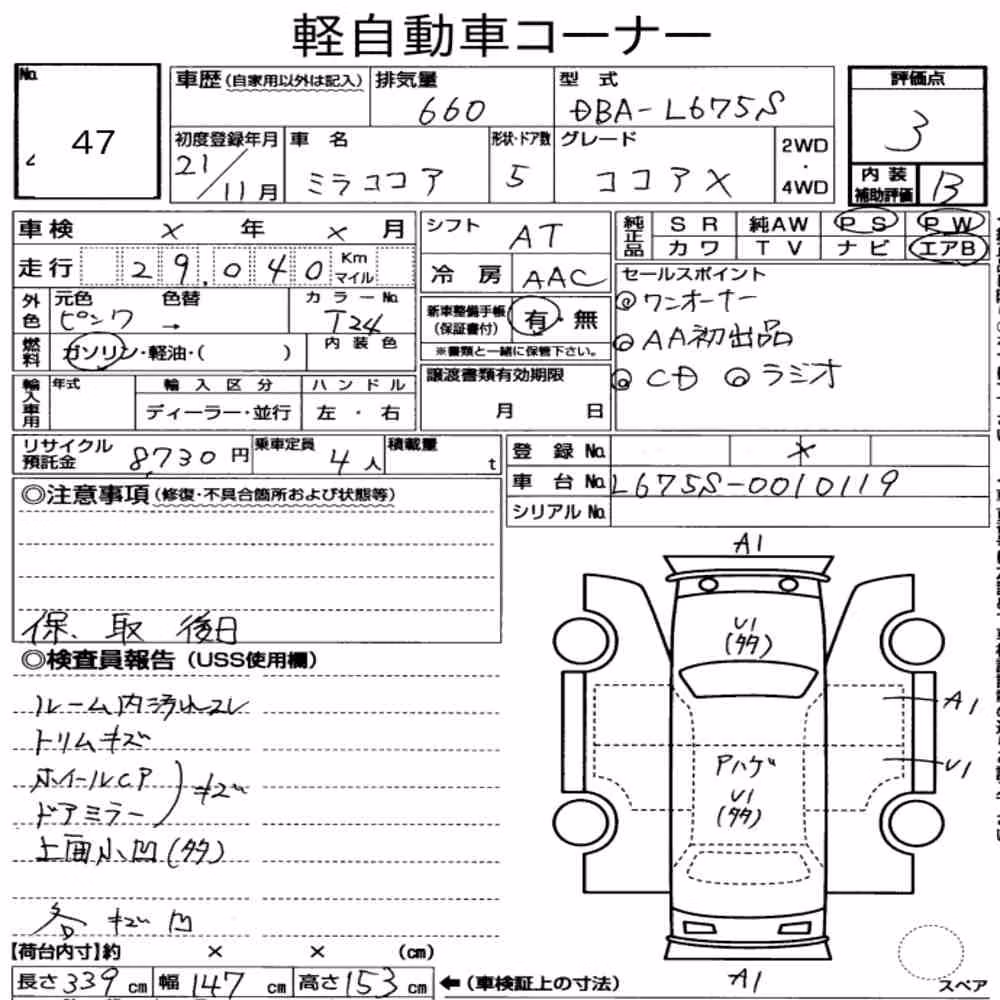 軽自動車コーナー
No. 47
車歴(自家用以外は記入) 排気量 660 型式 DBA-L675S 評価点 3
初度登録年月 21/11月 車名 ミラココア 形状・ドア数 5 グレード ココアX 2WD・4WD 内装補助評価 B
車検 × 年 × 月 シフト AT 純正品 SR 純AW PS PW
カワ TV ナビ エアB
走行 29,040 Km マイル 冷房 AAC セールスポイント
外色 元色 ピンク 色替 → カラーNo. T24 新車整備手帳(保証書付) 有・無 ◎ワンオーナー
燃料 ガソリン・軽油・( ) 内装色 ※書類と一緒に保管下さい。 ◎AA初出品
輸入車用 年式 輸入区分 ハンドル 譲渡書類有効期限 ◎CD ◎ラジオ
ディーラー・並行 左・右 月 日
リサイクル預託金 8,730円 乗車定員 4人 積載量 t 登録No. ×
車台No. L675S-0010119
◎注意事項(修復・不具合箇所および状態等) シリアルNo.
保、取 後日
◎検査員報告(USS使用欄)
ルーム内汚れコレ
トリムキズ
ホイールCP
ドアミラー
キズ
上面小凹(多)
各 キズ凹
A1
U1
(多)
A1
U1
Pハゲ
U1
(多)
A1
【荷台内寸】約 × × (cm)
長さ 339 cm 幅 147 cm 高さ 153 cm ←(車検証上の寸法) スペア